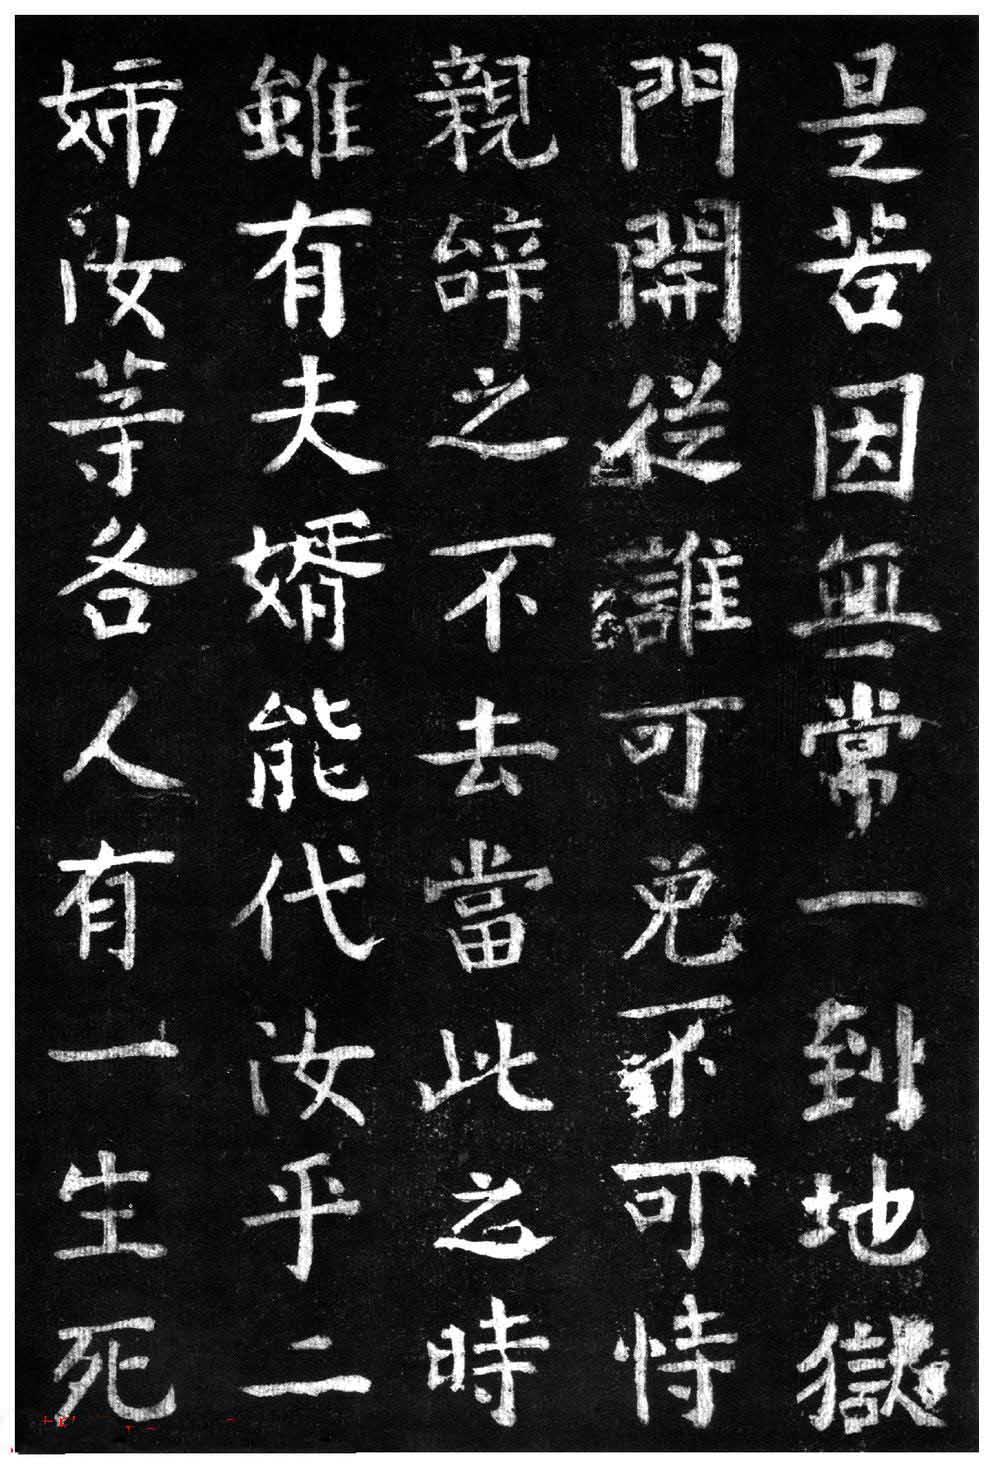 是苦因無常一到地獄
門開從誰可免不可恃
親辝之不去當此之時
雖有夫婿能代汝乎二
姊汝等各人有一生死